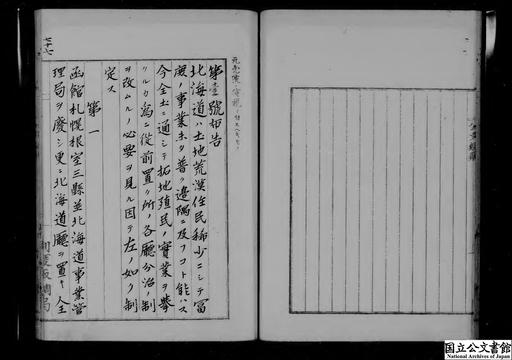 第壹號布告
北海道ハ土地荒漠住民稀少ニシテ富
庶ノ事業未タ普ク邊隅ニ及フコト能ハス
今全土ニ通シテ拓地殖民ノ實業ヲ擧
クルカ為ニ從前置ク所ノ各廳分治ノ制
ヲ改ムルノ必要ヲ見ル因テ左ノ如ク制
定ス
第一
函館札幌根室三縣並北海道事業管
理局ヲ廢シ更ニ北海道廳ヲ置キ全
七十七
国立公文書館
National Archives of Japan